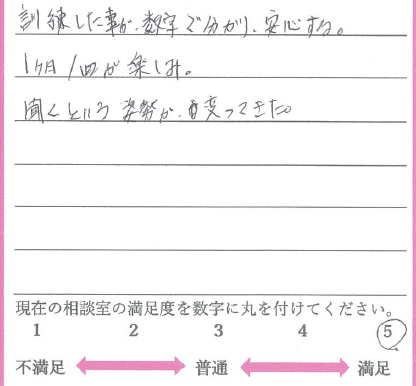 訓練した事が、数字で分かり、安心する。
1ヶ月1回が楽しみ。
聞くという姿勢が、変ってきた。
現在の相談室の満足度を数字に丸を付けてください。
1 2 3 4 5
不満足 普通 満足